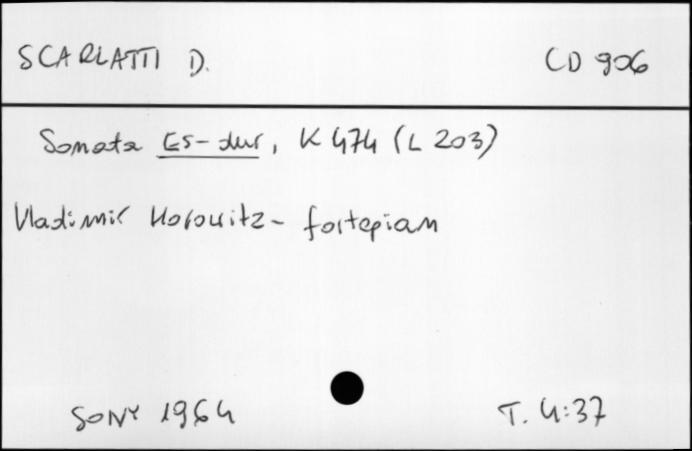 SCARLATTI D. CD 906
Sonata Es-dur, K 474 (L 203)
Vladimir Horowitz - fortepian
SONY 1964 T. 4:37